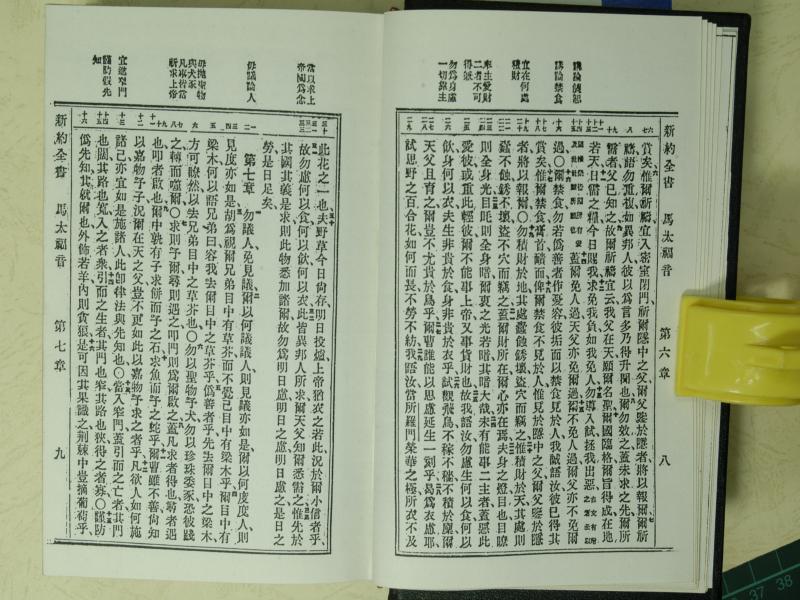 新約全書 馬太福音 第六章 八
講論禁食
宜在何處
積財
奉主愛財
二者不可
得兼
勿爲身慮
一切靠主
賞矣惟爾祈禱宜入密室閉門祈爾隱中之父爾父鑒於隱者將以報爾爾祈
禱語勿重複如異邦人彼以爲言多乃得升聞也爾勿效之蓋未求之先爾所
需者父已知之故爾祈禱宜云我父在天願爾名聖爾國臨格爾旨得成在地
若天日需之糧今日賜我求免我負如我免人負勿導入試拯我出惡
蓋爾免人過天父亦免爾過爾不免人過爾父亦不免爾
過〇爾禁食勿若僞善者作憂容彼垢面以禁食見於人我誠語汝彼已得其
賞矣惟爾禁食膏首靧面俾爾禁食不見於人惟見於隱中之父爾父鑒於隱
者將以報爾〇勿積財於地其處蠧蝕銹壞盜穴而竊之惟積財於天其處則
蠧不蝕銹不壞盜不穴而竊之蓋爾財所在爾心亦在焉夫身之燈目也目瞭
則全身光目眊則全身暗爾衷之光若暗其暗大哉未有能事二主者蓋惡此
愛彼或重此輕彼爾不能事上帝又事貨財也故我語汝勿慮生何以食何以
飲身何以衣夫生非貴於食身非貴於衣乎試觀飛鳥不稼不穡不積於廩爾
天父且育之爾豈不尤貴於鳥乎爾曹誰能以思慮延生一刻乎曷爲衣慮耶
試思野之百合花如何而長不勞不紡我語汝當所羅門榮華之極所衣不及
新約全書 馬太福音 第七章 九
當以求上
帝國爲念
毋議論人
毋拋聖物
與犬豕
凡事皆當
祈求上帝
宜進窄門
謹防假先
知
此花之一也夫野草今日尙存明日投爐上帝猶衣之若此況於爾小信者乎
故勿慮何以食何以飲何以衣此皆異邦人所求爾天父知爾悉需之惟先於
其國其義是求則此物悉加諸爾故勿爲明日慮明日之慮明日慮之是日之
勞是日足矣
第七章 勿議人免見議爾以何議議人則見議亦如是爾以何度度人則
見度亦如是胡爲視爾兄弟目中有草芥而不覺己目中有梁木乎爾目中有
梁木何以語兄弟曰容我去爾目中之草芥乎僞善者乎先去爾目中之梁木
方可瞭然以去兄弟目中之草芥也〇勿以聖物予犬勿以珍珠委豕恐彼踐
之轉而噬爾〇求則予爾尋則遇之叩門則爲爾啟之蓋凡求者得也尋者遇
也叩者啟也爾中孰有子求餅而予之石求魚而予之蛇乎爾曹雖不善尙知
以嘉物予子況爾在天之父豈不更如此以嘉物予求之者乎凡欲人如何施
諸己亦宜如是施諸人此卽律法與先知也〇當入窄門蓋引而之亡者其門
也闊其路也寬入之者衆引而之生者其門也窄其路也狹得之者寡〇謹防
僞先知其就爾也外飾若羊內則貪狼是可因其果識之荊棘中豈摘葡萄乎
37
38